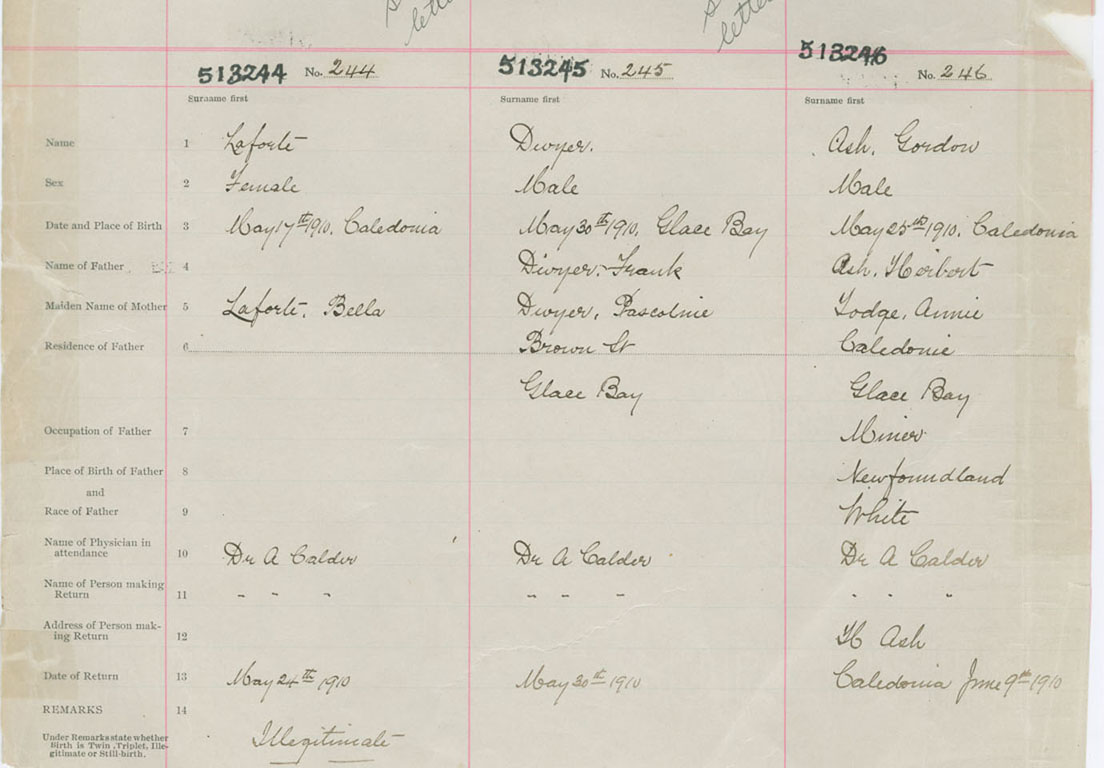 letter
letter
513244 No. 244 513245 No. 245 513246 No. 246
Surname first Surname first Surname first
Name 1 Laforte Dwyer. Ash, Gordon
Sex 2 Female Male Male
Date and Place of Birth 3 May 17th 1910, Caledonia May 30th 1910, Glace Bay May 25th 1910, Caledonia
Name of Father 4 Dwyer, Frank Ash, Herbert
Maiden Name of Mother 5 Laforte, Bella Dwyer, Pascolnie Annie
Residence of Father 6 Brown St Caledonie
Glace Bay Glace Bay
Occupation of Father 7 Miner
Place of Birth of Father 8 Newfoundland
and
Race of Father 9 White
Name of Physician in
attendance 10 Dr A Calder Dr A Calder Dr A Calder
Name of Person making
Return 11 " " " " " " " " "
Address of Person mak-
ing Return 12 H Ash
Date of Return 13 May 24th 1910 May 30th 1910 Caledonia June 9th 1910
REMARKS 14
Under Remarks state whether
Birth is Twin, Triplet, Ille-
gitimate or Still-birth.
Illegitimate